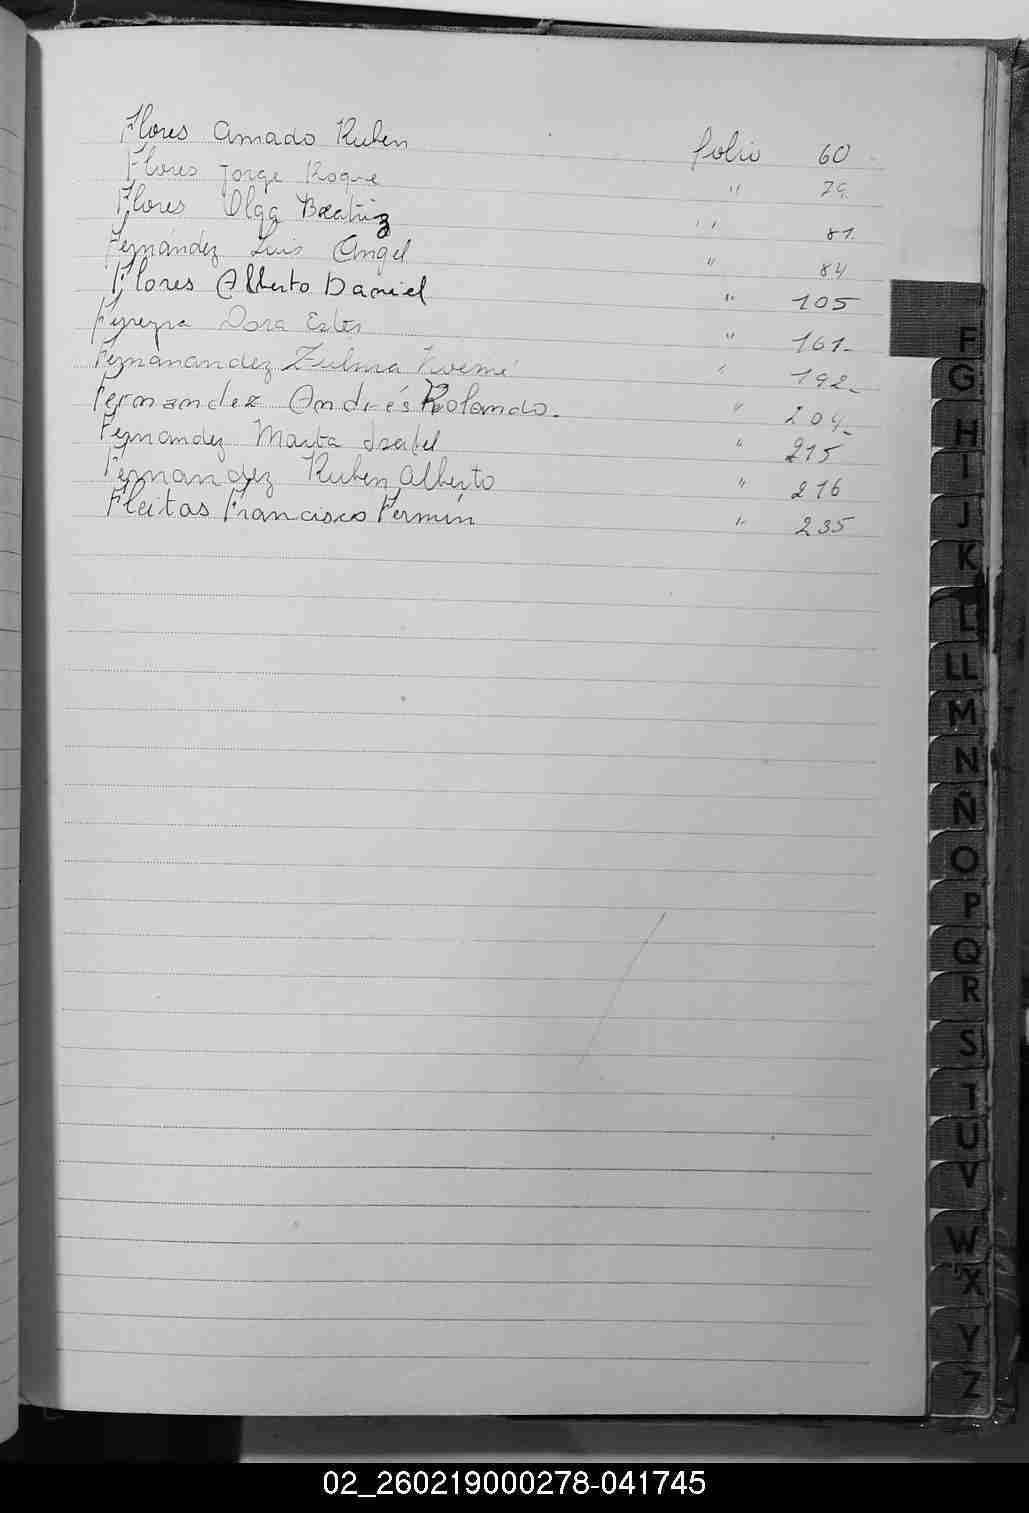 Flores Amado Ruben folio 60
Flores Jorge Roque " 79.
Flores Olga Beatriz " 81.
Fernández Luis Angel " 84
Flores Alberto Daniel " 105
Ferreyra Dora Ester " 161-
Fernanandez Zulma Noemi " 192-
Fernandez Andrés Rolando. " 204-
Fernandez Marta Isabel " 215
Fernandez Ruben Alberto " 216
Fleitas Francisco Fermín " 235
F
G
H
I
J
K
L
LL
M
N
Ñ
O
P
Q
R
S
T
U
V
W
X
Y
Z
02_260219000278-041745